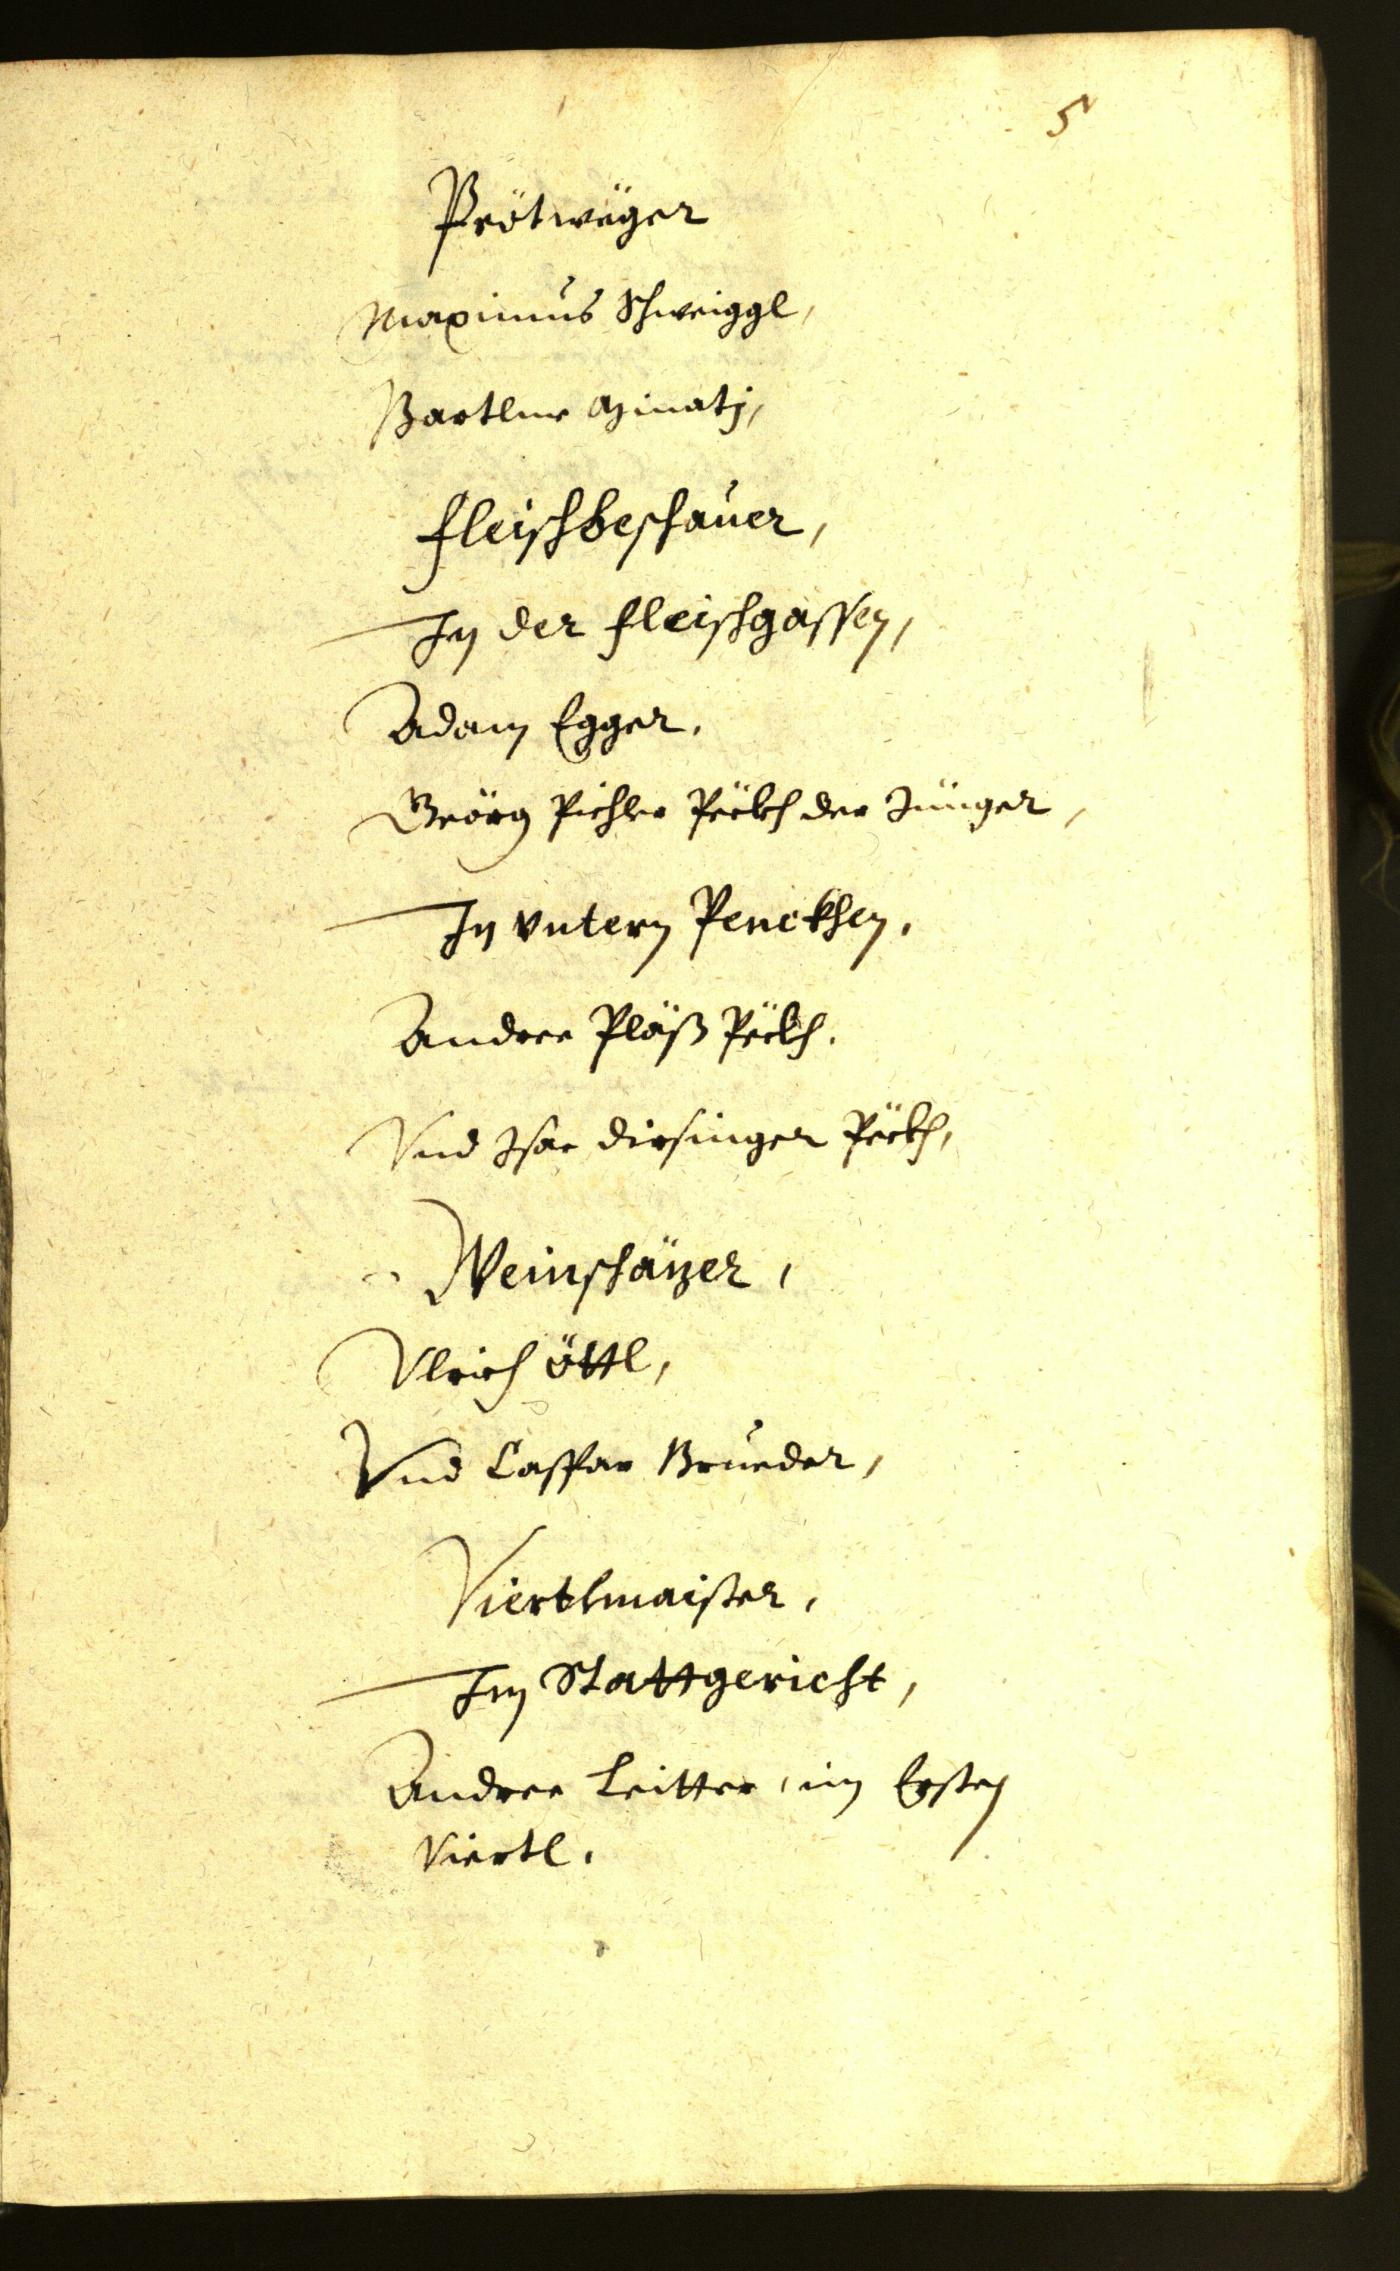 5
Prötweger
Maximus Schweiggl,
Bartlme Aginatj,
Fleischbeschauer,
In der Fleischgassen,
Adam Egger.
Geörg Pichler Peckh der Jünger,
In vntern Penckhen.
Andree Pläß Peckh.
Vnd Isac Dirsinger Peckh,
Weinschäzer,
Vlrich öttl,
Vnd Casspar Brueder,
Viertlmaister,
Im Stattgericht,
Andree Leitter, im Ersten
Viertl.